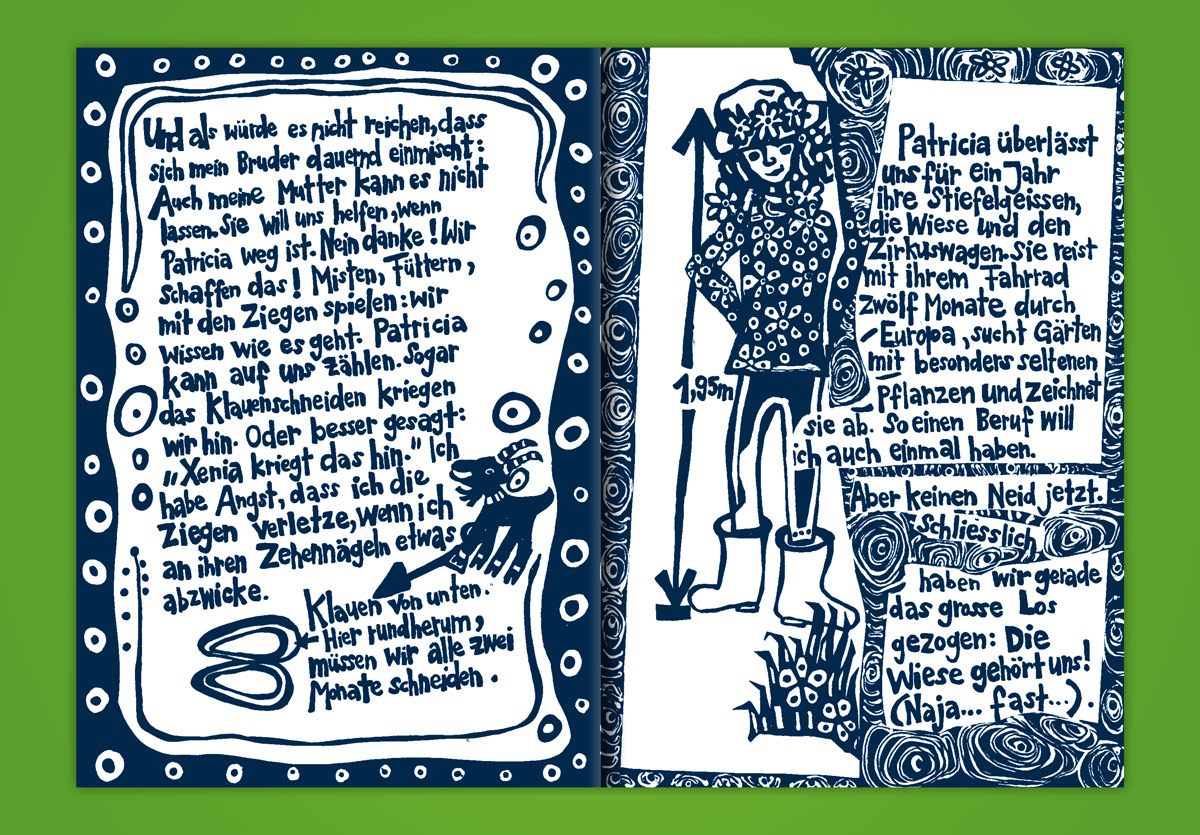 Und als würde es nicht reichen, dass
sich mein Bruder dauernd einmischt:
Auch meine Mutter kann es nicht
lassen. Sie will uns helfen, wenn
Patricia weg ist. Nein danke! Wir
schaffen das! Misten, Füttern,
mit den Ziegen spielen: wir
wissen wie es geht. Patricia
kann auf uns zählen. Sogar
das Klauenschneiden kriegen
wir hin. Oder besser gesagt:
„Xenia kriegt das hin." Ich
habe Angst, dass ich die
Ziegen verletze, wenn ich
an ihren Zehennägeln etwas
abzwicke.
Klauen von unten.
Hier rundherum,
müssen wir alle zwei
Monate schneiden.
1,95m
Patricia überlässt
uns für ein Jahr
ihre Stiefelgeissen,
die Wiese und den
Zirkuswagen. Sie reist
mit ihrem Fahrrad
zwölf Monate durch
Europa, sucht Gärten
mit besonders seltenen
Pflanzen und zeichnet
sie ab. So einen Beruf will
ich auch einmal haben.
Aber keinen Neid jetzt.
schliesslich
haben wir gerade
das grosse Los
gezogen: Die
Wiese gehört uns!
(Naja... fast...).